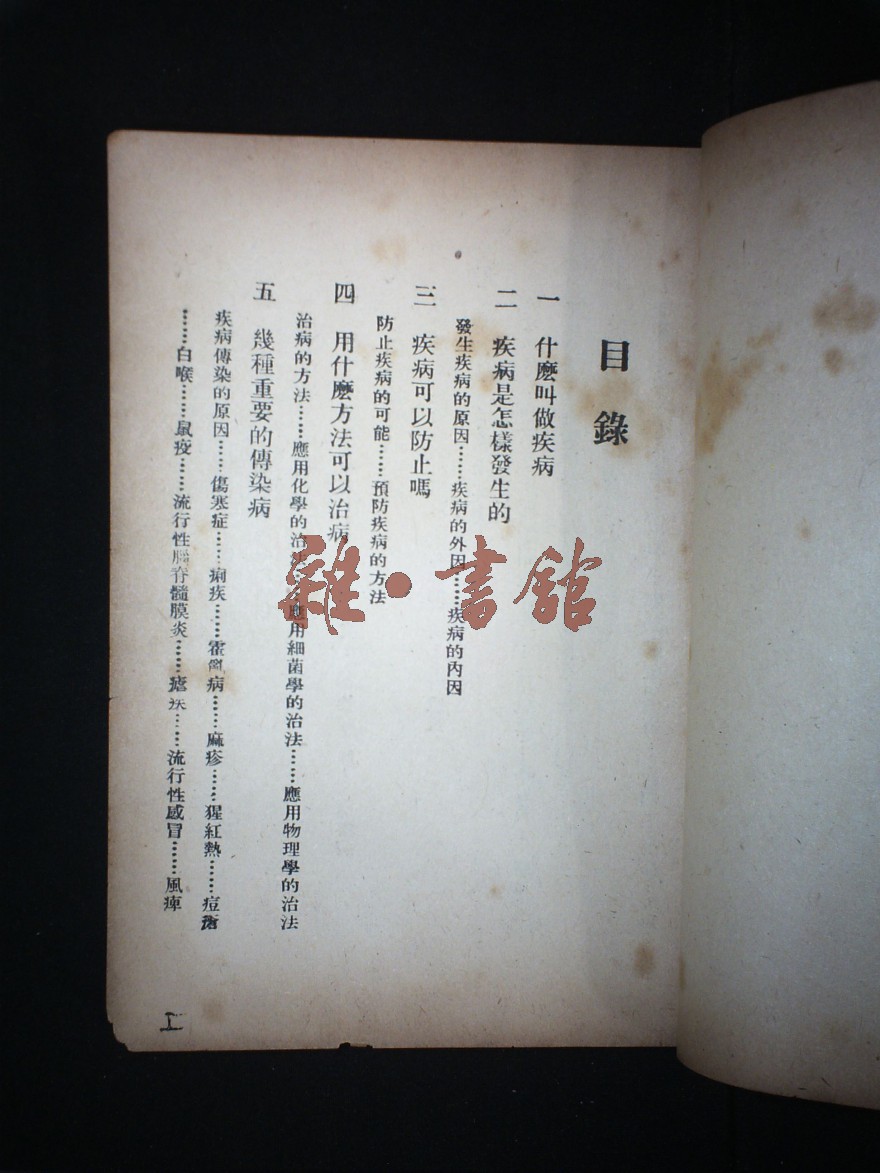 目錄
一 什麽叫做疾病
二 疾病是怎樣發生的
發生疾病的原因……疾病的外因……疾病的內因
三 疾病可以防止嗎
防止疾病的可能……預防疾病的方法
四 用什麽方法可以治病
治病的方法……應用化學的治法……應用細菌學的治法……應用物理學的治法
五 幾種重要的傳染病
疾病傳染的原因……傷寒症……痢疾……霍亂病……麻疹……猩紅熱……痘瘡
……白喉……鼠疫……流行性腦脊髓膜炎……瘧疾……流行性感冒……風痺
雜·書館